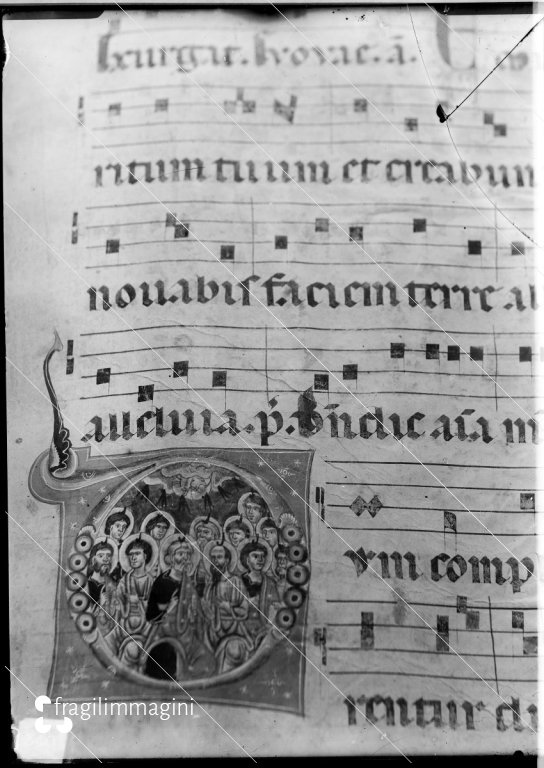 Exurgat. Evovae. a̅.
ritum tuum et creabun
novabis faciem terre al
alleluia. p̅. Bn̅dic aı̅a m
um comp
rentur di
fragilimmagini